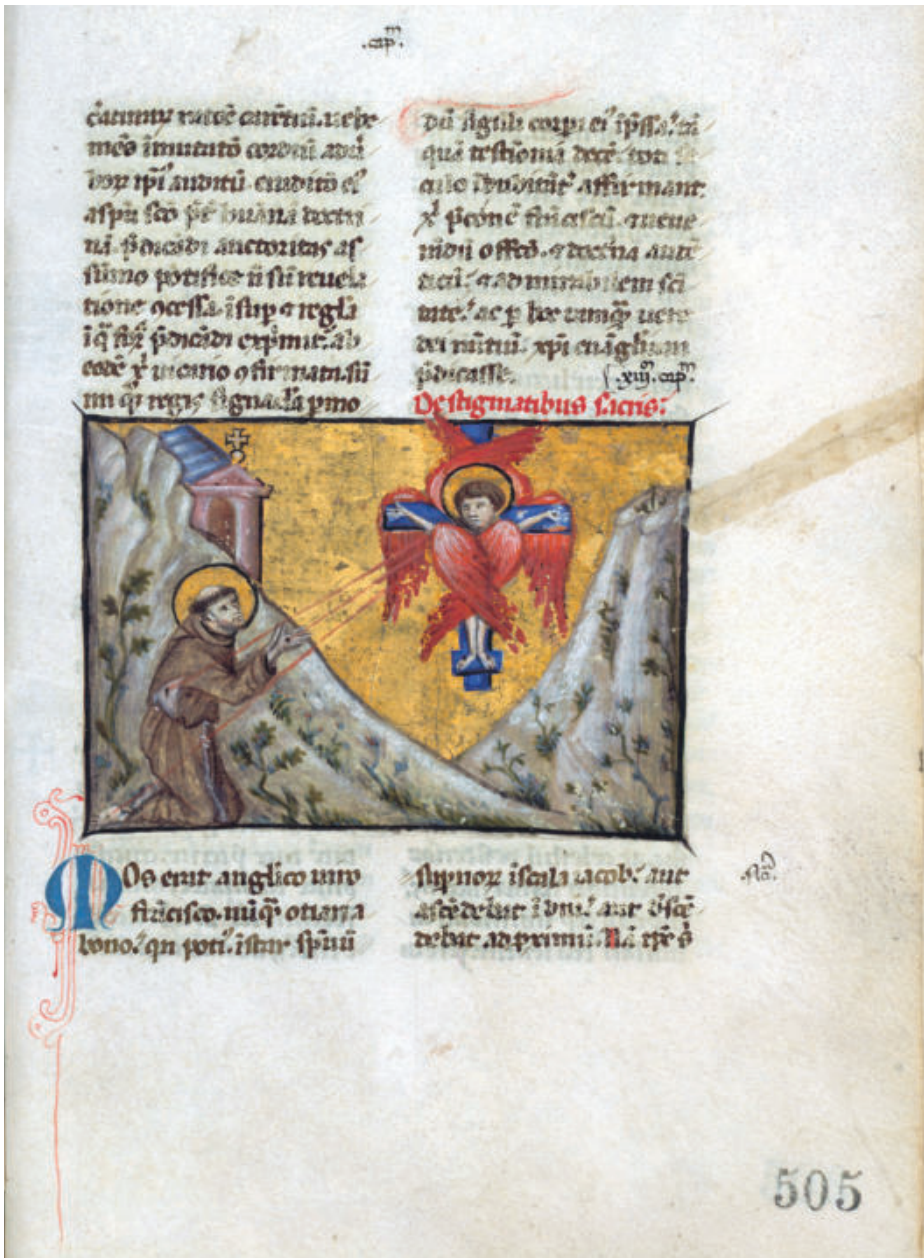 .cap̄m.
c̄atuuꝝ ratōe carētiū. uehe
mēs īmutatō cordiū adu̇
boꝝ ip̄i auditū. eruditō eī
aspū sc̄o p̄t huanā doctri
nā. p̄dicādi auctoritas as
sūmo pōtifice ñ siñ reuela
tione ꝯcessa. īsuꝑ ⁊ regl̄a
ī q̄ for̄ p̄dicādi exp̄mit̄. ab
eodē x̄ uicario ꝯfirmata. sū
mi q̄ regis signac̄la p mo
dū sigilli corpi ei' īp̄ssa. tā
quā testīonia decē. toti se
culo īdubitāt̄ affirmant.
x̄ p̄conē frāciscū. ⁊ uene
randū offic̄o. ⁊ doct̄na autē
ticū. ⁊ admirabilem sc̄i
tate. ac p hoc tamq̄ uere
dei nūtiū. xp̄i euāgl̄ium
p̄dicasse. .xiij. cap̄m.
De stigmatibus sacris.
Mos erat anglico uiro
frācisco. nūq̄ otiari a
bono. q̄n poti'. īstar spūū
sup̄noꝝ ī scala iacob. aut
ascēdebat ī dm̄. aut d̄scē
debat ad p̄ximū. Nā tp̄s
505